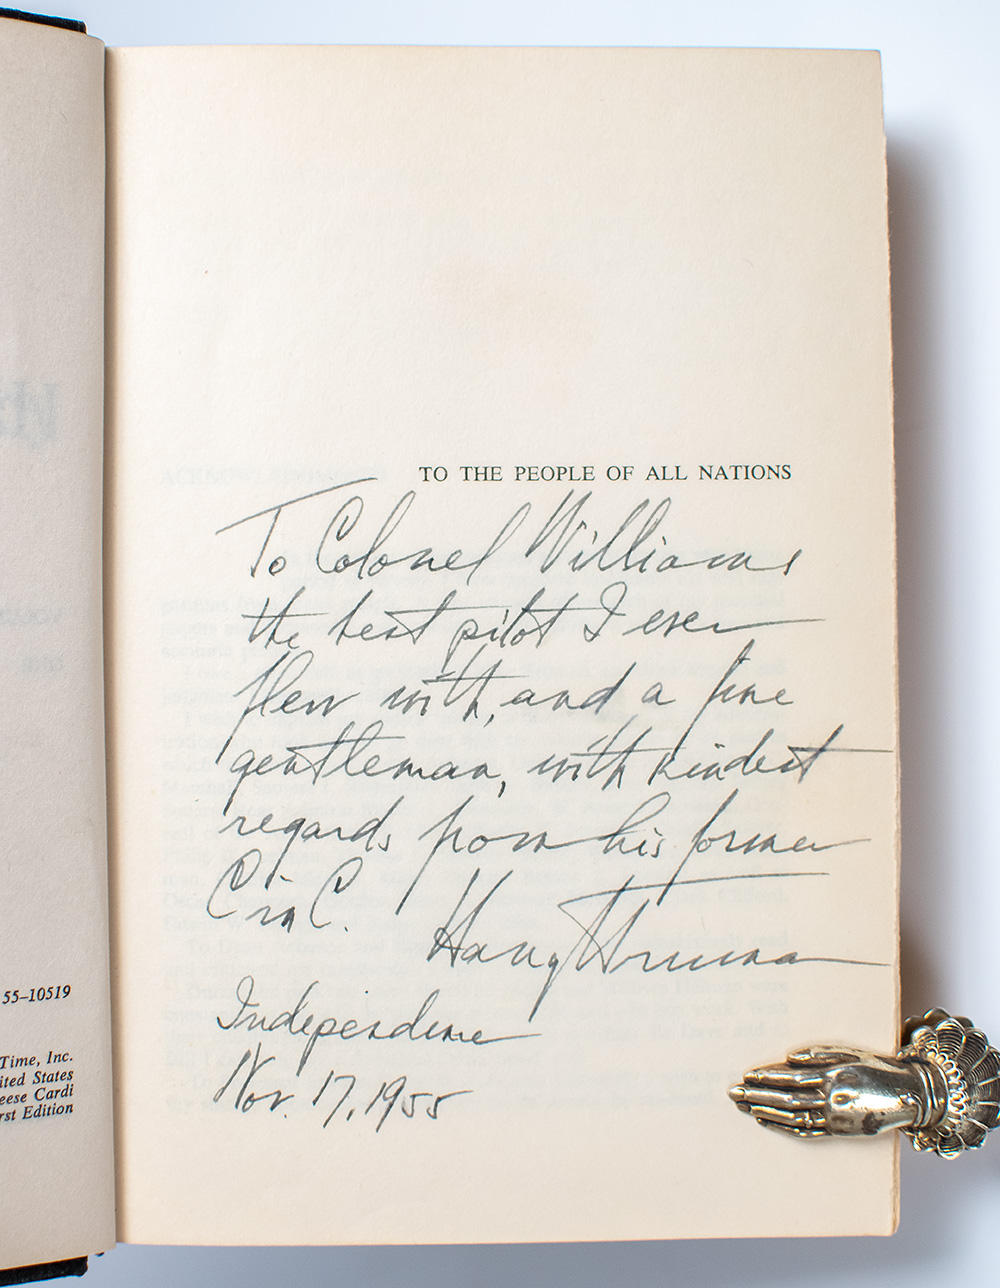 55–10519
Time, Inc.
ited States
eese Cardi
rst Edition
TO THE PEOPLE OF ALL NATIONS
To Colonel Williams
the best pilot I ever
flew with, and a fine
gentleman, with kindest
regards from his former
C in C.
Harry Truman
Independence
Nov. 17, 1955